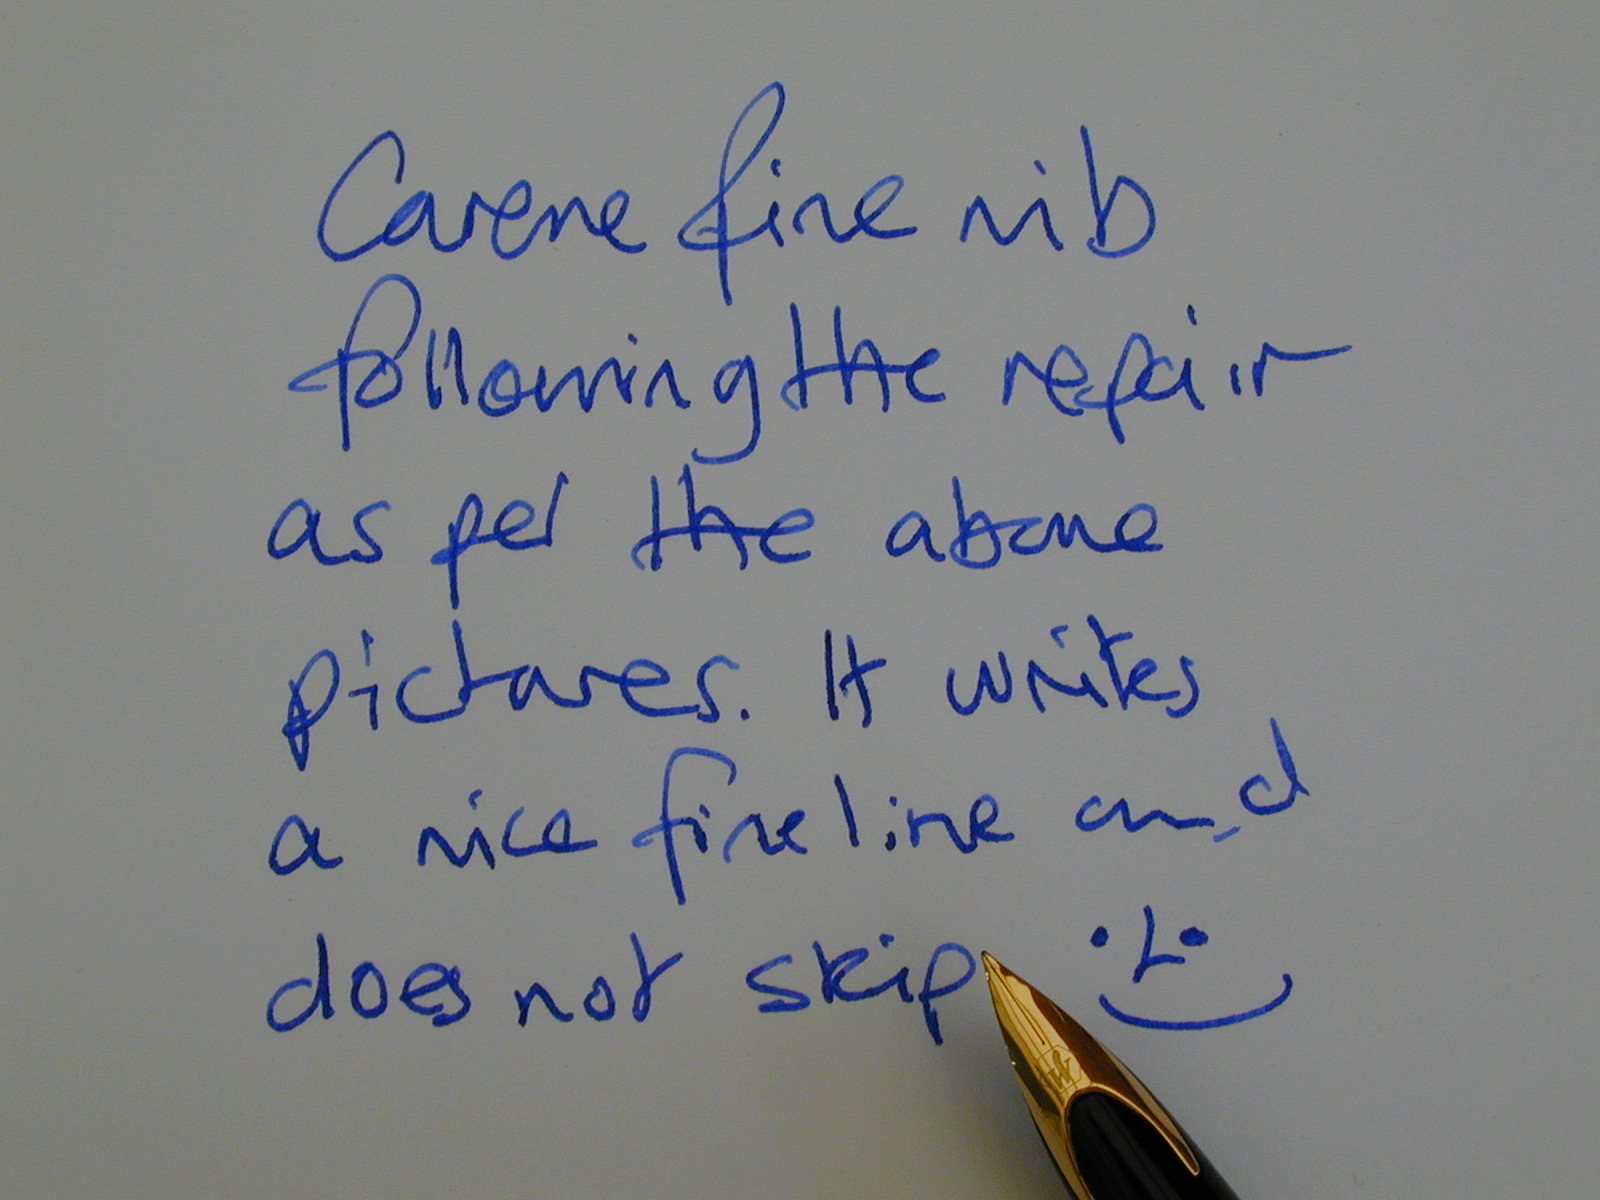 Carene fine nib
following the repair
as per the above
pictures. It writes
a nice fine line and
does not skip
W